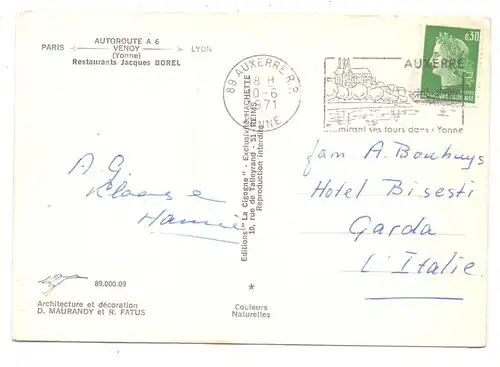 AUTOROUTE A 6
PARIS VENOY LYON
(Yonne)
Restaurants Jacques BOREL
89 AUXERRE R.P.
8 H
0-6
1971
YONNE
AUXERRE
...mirant ses tours dans l'Yonne
0,30
Editions "La Cigogne" - Exclusivité HACHETTE
10, rue de Talleyrand - 51-REIMS
Reproduction interdite
A. G.
Klaasse
Hannie
fam A. Bouhuys
Hotel Bisesti
Garda
L'Italie
89.000.09
Architecture et décoration
D. MAURANDY et R. FATUS
Couleurs
Naturelles